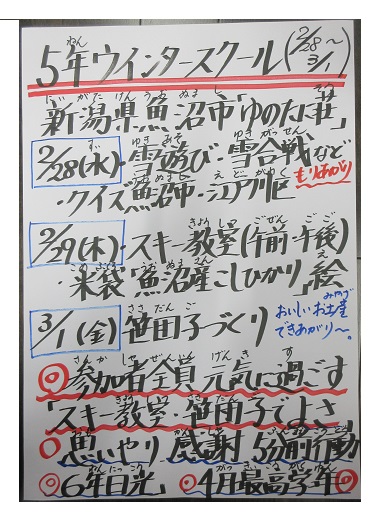 5年ウインタースクール(2/28〜3/1)
新潟県魚沼市「ゆのたに荘」
2/28(水)・雪遊び・雪合戦など
・クイズ「魚沼市・江戸川区」もりあがり
2/29(木)・スキー教室(午前・午後)
・米袋「魚沼産こしひかり」絵
3/1(金)笹団子づくり おいしいお土産できあがり〜。
◎参加者全員 元気に過ごす
「スキー教室・笹団子でよさ
○思いやり 感謝 5分前行動
◎6年日光」「4月最高学年◎